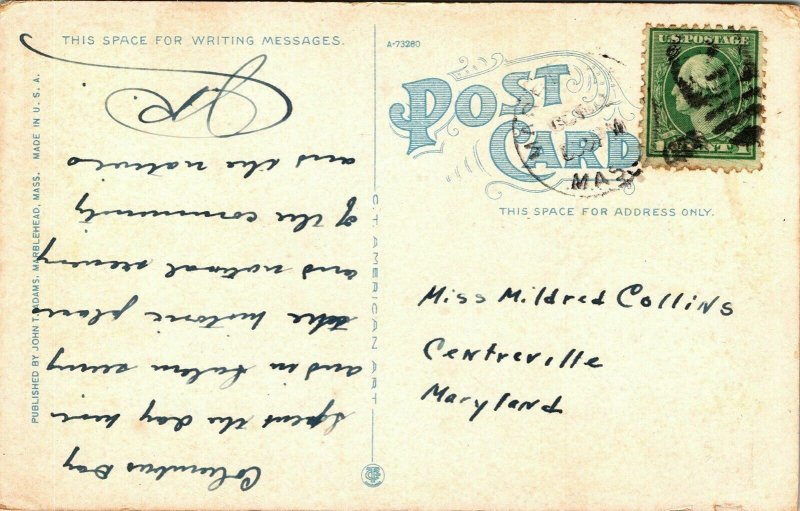 THIS SPACE FOR WRITING MESSAGES.
Columbus Day
Spent the day here
and in Salem seeing
the historic places
and natural scenery
of the community
and the natives
PUBLISHED BY JOHN T. ADAMS, MARBLEHEAD, MASS. MADE IN U. S. A.
C. T. AMERICAN ART
A-73280
POST CARD
MASS
U.S. POSTAGE
THIS SPACE FOR ADDRESS ONLY.
Miss Mildred Collins
Centreville
Maryland